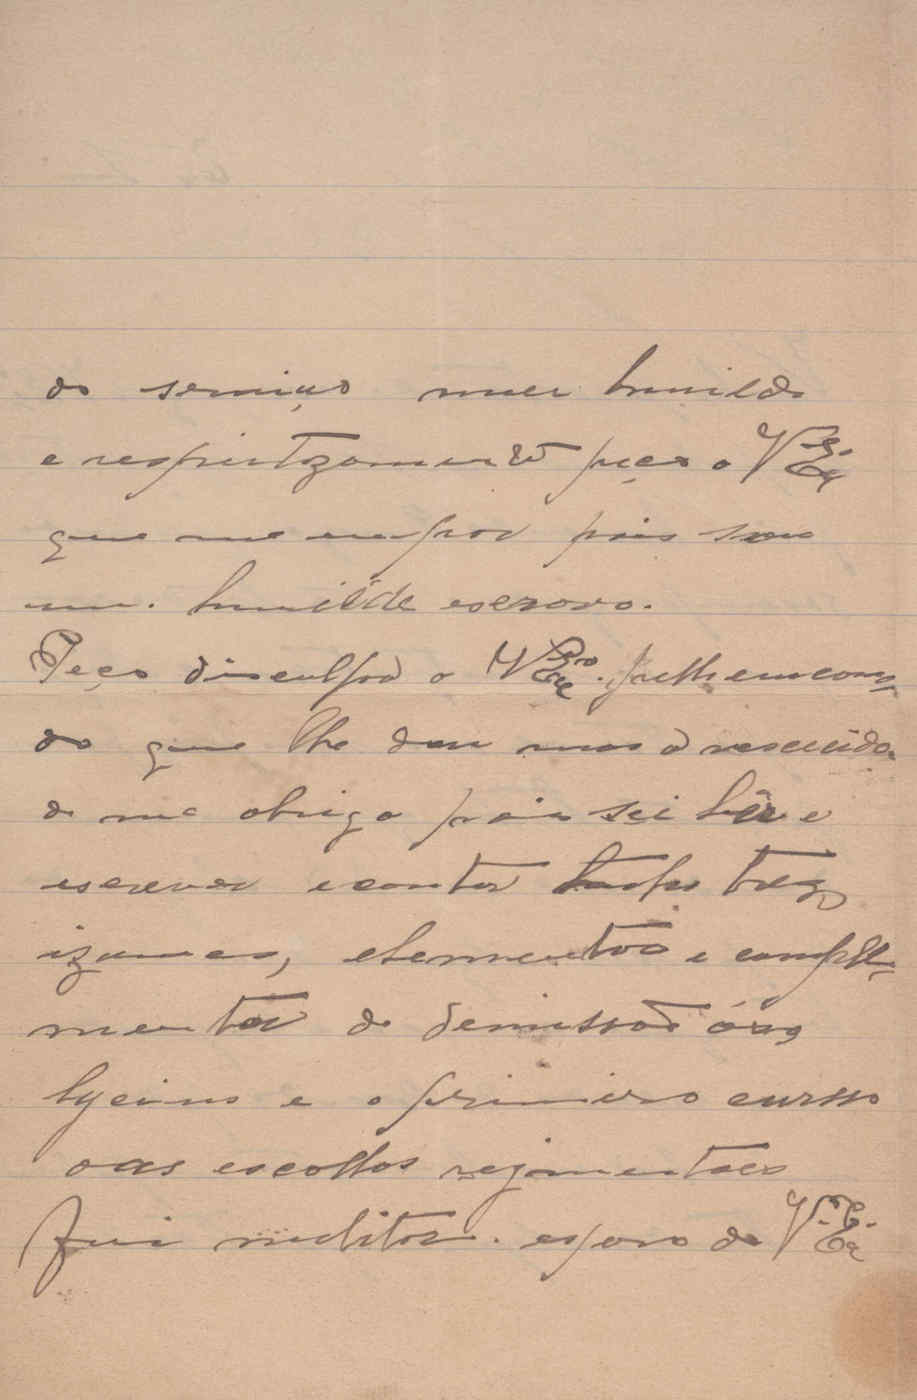 do serviço muer humilde
e respeitzamente peço a V Exa
que me empor pois sou
um. humilde escravo.
Peço disculpa a V Exa.
do que lhe dou mas a nescecida
de me obriga pois sei lêr e
escrever e contar tres
izames, elementar e comple-
mentar de demissão áos
lyceius e o primeiro cursso
das escollas rejimentaes
fui melitar. espero de V. Exa